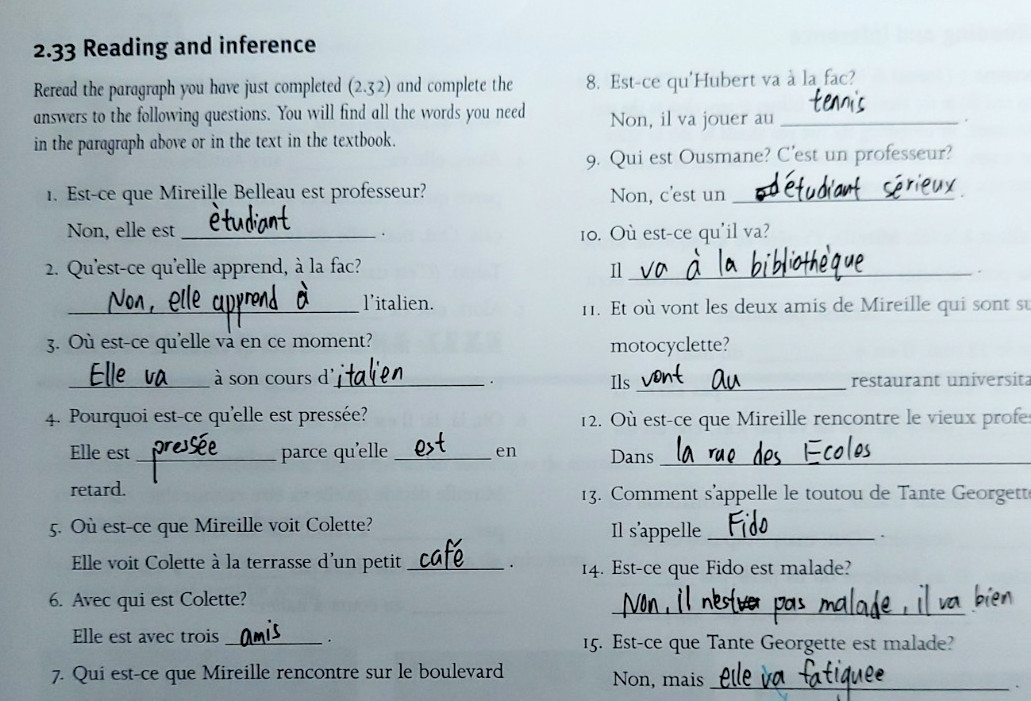 2.33 Reading and inference
Reread the paragraph you have just completed (2.32) and complete the
answers to the following questions. You will find all the words you need
in the paragraph above or in the text in the textbook.
1. Est-ce que Mireille Belleau est professeur?
Non, elle est ètudiant.
2. Qu'est-ce qu'elle apprend, à la fac?
Non, elle apprend à l'italien.
3. Où est-ce qu'elle va en ce moment?
Elle va à son cours d'italien.
4. Pourquoi est-ce qu'elle est pressée?
Elle est pressée parce qu'elle est en
retard.
5. Où est-ce que Mireille voit Colette?
Elle voit Colette à la terrasse d'un petit café.
6. Avec qui est Colette?
Elle est avec trois amis.
7. Qui est-ce que Mireille rencontre sur le boulevard
8. Est-ce qu'Hubert va à la fac?
Non, il va jouer au tennis.
9. Qui est Ousmane? C'est un professeur?
Non, c'est un étudiant sérieux.
10. Où est-ce qu'il va?
Il va à la bibliothèque.
11. Et où vont les deux amis de Mireille qui sont su
motocyclette?
Ils vont au restaurant universita
12. Où est-ce que Mireille rencontre le vieux profe
Dans la rue des Ecoles
13. Comment s'appelle le toutou de Tante Georgett
Il s'appelle Fido.
14. Est-ce que Fido est malade?
Non, il n'est pas malade, il va bien
15. Est-ce que Tante Georgette est malade?
Non, mais elle va fatiguee.